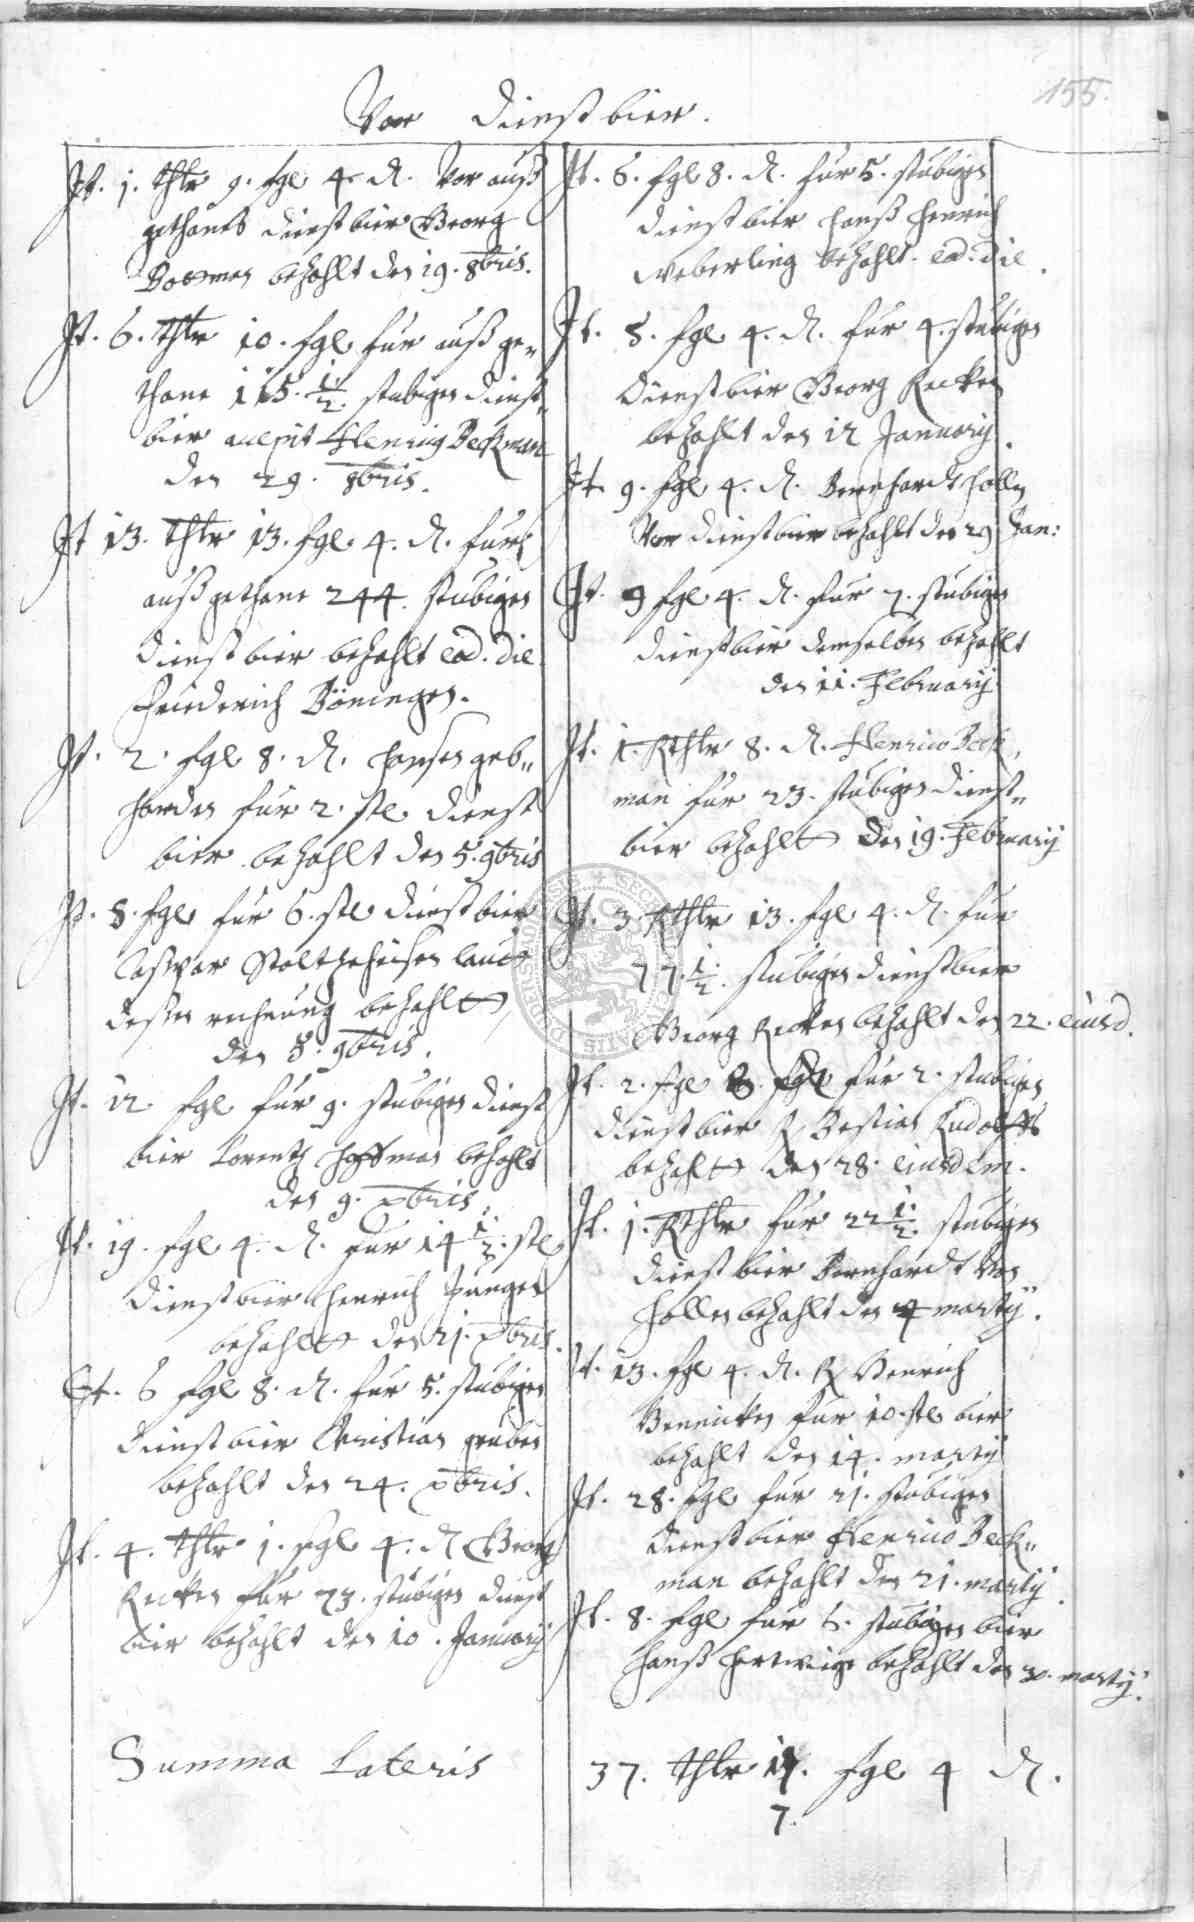 155.
Vor dienst bier.
It. 1. thlr 9. fgl 4. d. Vor auß
gethanes dienst bier Georg
bezahlt den 19. 8bris.
It. 6. thlr 10. fgl für auß ge„
thane 115. 1/2. stübigen dienst„
bier accepit Henning Beckman
den 29. 8bris.
It 13. thlr 13. fgl 4. d. für
außgethane 244. stübigen
dienst bier bezahlt eod. die
Friederich Böningen.
It. 2. fgl 8. d. Hansen geb„
harden für 2. stl dienst
bier bezahlt den 5. 9bris
It. 8. fgl für 6. stl dienst bier
Caspar Stoltzeheisen laut
deßen rechnung bezahlt
den 8. 9bris.
It. 12. fgl für 9. stübigen dienst
bier Lorentz Hoffman bezahlt
den 9. xbris.
It. 19. fgl 4. d. für 14 1/2. stl
dienst bier Henrich Jüngen
bezahlt den 21. xbris.
It. 6 fgl 8. d. für 5. stübigen
dienst bier Christian gruben
bezahlt den 24. xbris.
It. 4. thlr 1. fgl 4. d Georg
Recken für 73. stübigen dienst
bier bezahlt den 10. January
It. 6. fgl 8. d. für 5. stübigen
dienst bier Hanß Henrich
Weberling bezahlt. eod. die.
It. 5. fgl 4. d. für 4. stübigen
dienst bier Georg Recken
bezahlt den 12 January.
It 9. fgl 4. d. Bernhardt Hollen
Vor dienst bier bezahlt den 29 Jan:
It. 9 fgl 4. d. für 7. stübigen
dienst bier demselben bezahlt
den 11. February
It. 1. Rthlr 8. d. Henrico Beck„
man für 23. stübigen dienst„
bier bezahlt den 19. February
It. 3. Rthlr 13. fgl 4. d. für
77. 1/2. stübigen dienst bier
Georg Recken bezahlt den 22. eiusd.
It. 2. fgl 8. für 2. stübigen
dienst bier Bastian Rudolffs
bezahlt den 28. eiusdem.
It. 1. Rthlr für 22 1/2. stübigen
dienst bier Bernhardt Von
Hollen bezahlt den 4 marty.
It. 13. fgl 4. d. Henrich
Bennicken für 10. stl bier
bezahlt den 14. marty
It. 28. fgl für 21. stübigen
dienst bier Henrico Beck„
man bezahlt den 21. marty.
It. 8. fgl für 6. stübigen bier
Hanß Hertwige bezahlt den 30. marty.
Summa Lateris 37. thlr fgl 4 d.
7.